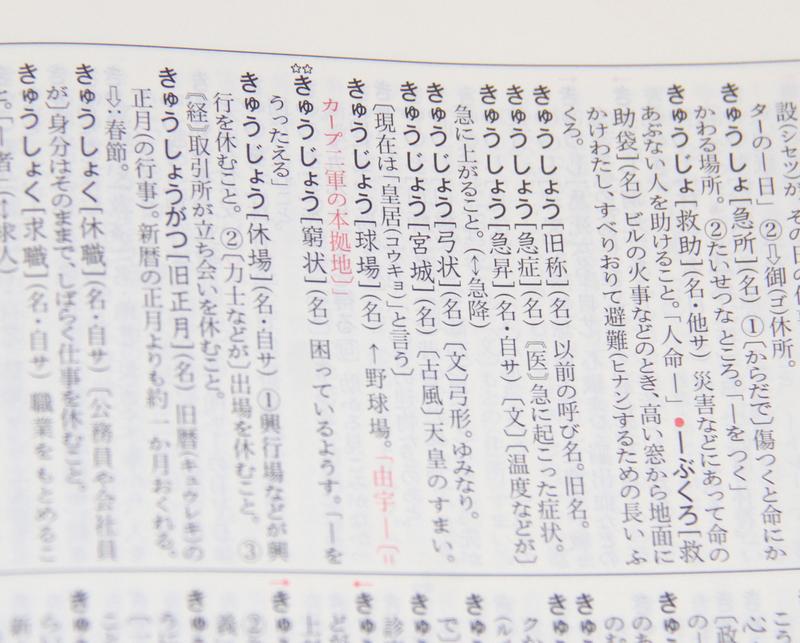 設(シセツ)が、その日の
ターの―日」 ②⇨御(ゴ)休所。
きゅうしょ[急所](名) ①〔からだで〕傷つくと命にか
かわる場所。②たいせつな ところ。「―を つく」
きゅうじょ[救助](名・他サ) 災害などにあって命の
あぶない人を助けること。「人命―」●―ぶくろ[救
助袋](名) ビルの火事などのとき、高い窓から地面に
かけわたし、すべりおりて避難(ヒナン)するための長い ふ
くろ。
きゅうしょう[旧称](名) 以前の呼び名。旧名。
きゅうしょう[急症](名) 〘医〙急に起こった症状。
きゅうしょう[急昇](名・自サ) 〔文〕〔温度などが〕
急に上がること。(↕急降)
きゅうじょう[弓状](名) 〔文〕弓形。ゆみなり。
きゅうじょう[宮城](名) 〔古風〕天皇のすまい。
〔現在は「皇居(コウキョ)」と言う〕
きゅうじょう[球場](名) ↑野球場。「由宇―〔=
カープ二軍の本拠地〕」
☆☆きゅうじょう[窮状](名) 困っているようす。「―を
うったえる」
きゅうじょう[休場](名・自サ) ①興行場などが興
行を休むこと。②〔力士などが〕出場を休むこと。③
〘経〙取引所が立ち会いを休むこと。
きゅうしょうがつ[旧正月](名) 旧暦(キュウレキ)の
正月(の行事)。新暦の正月よりも約一か月おくれる。
⇩:春節。
きゅうしょく[休職](名・自サ) 〔公務員や会社員
が〕身分はそのままで、しばらく仕事を休むこと。
きゅうしょく[求職](名・自サ) 職業をもとめるこ
と。「―者」(↕求人)